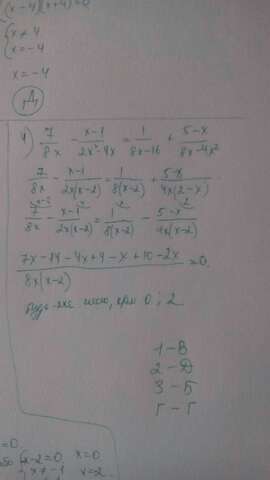 (x-4)(x+4)=0
{x≠4
{x=-4
x=-4
Д
4) 7/8x - x-1/2x²-4x = 1/8x-16 + 5-x/8x-4x²
7/8x - x-1/2x(x-2) = 1/8(x-2) + 5-x/4x(2-x)
7/8x - x-1/2x(x-2) = 1/8(x-2) - 5-x/4x(x-2)
7x-14-4x+4-x+10-2x/8x(x-2) = 0
будь-яке число, крім 0 і 2
1-В
2-Д
3-Б
Г-Г
=0
x-2=0 x=0
x≠-1 x=2